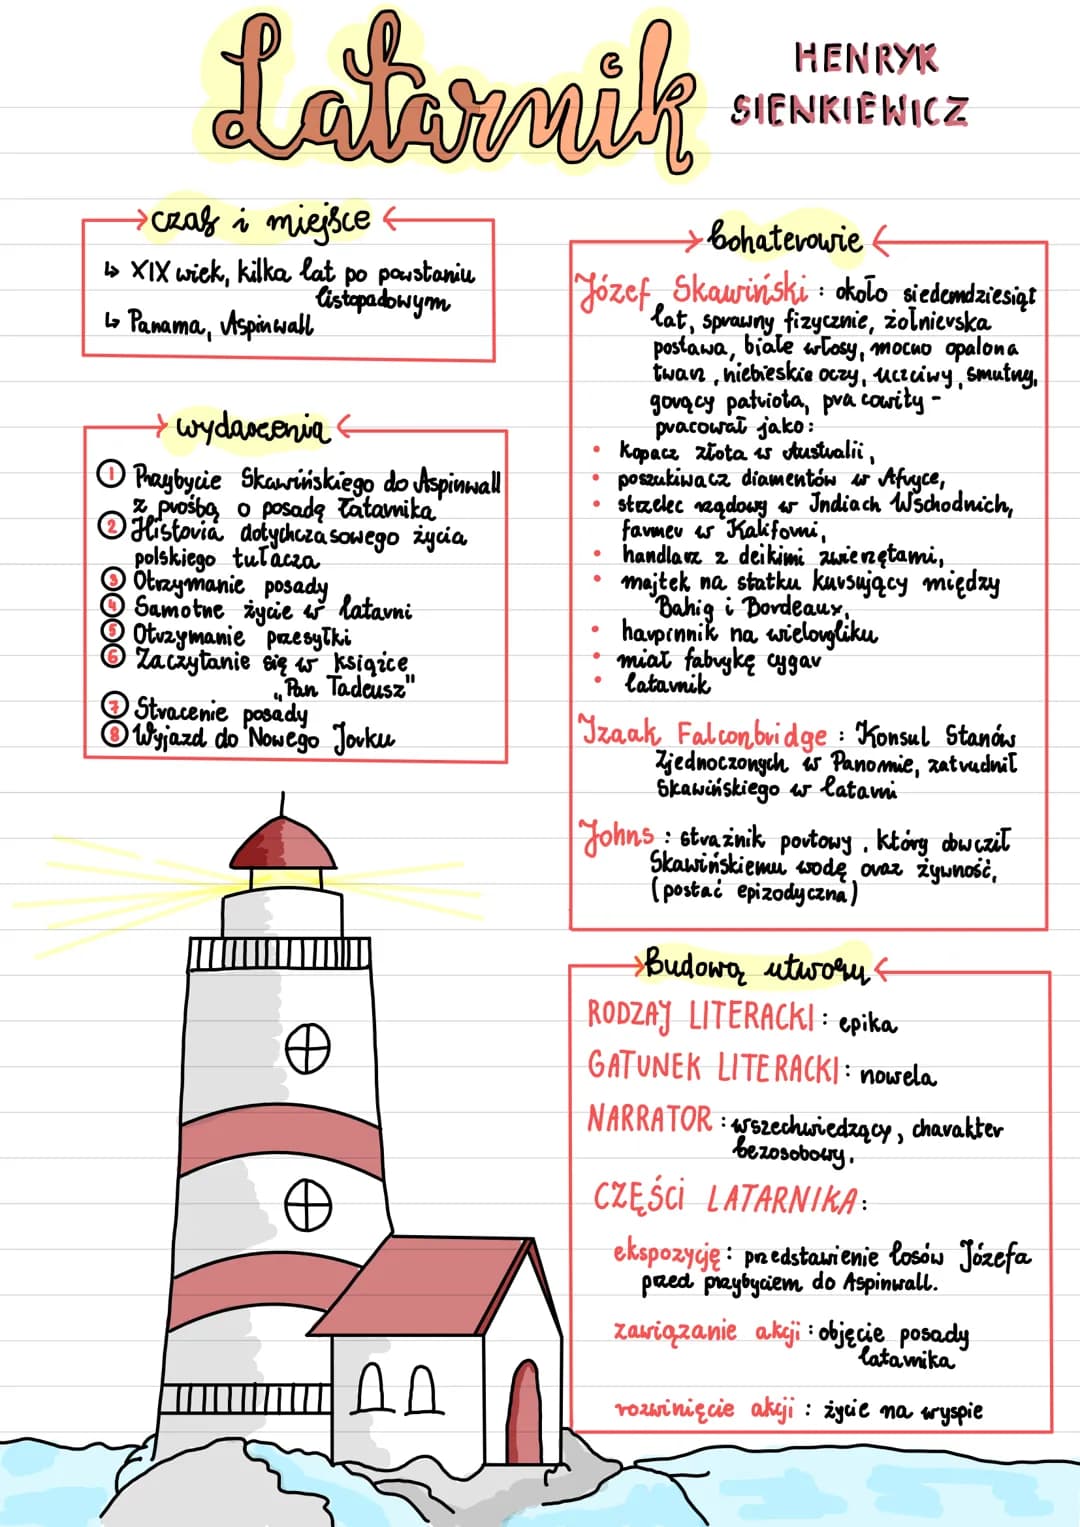 Latarnik
HENRYK
SIENKIEWICZ
czas i miejsce
↳ XIX wiek, kilka lat po powstaniu
listopadowym
↳ Panama, Aspinwall
wydarzenia
1 Przybycie Skawińskiego do Aspinwall
z prośbą o posadę latarnika
2 Historia dotychczasowego życia
polskiego tułacza
3 Otrzymanie posady
4 Samotne życie w latarni
5 Otrzymanie przesyłki
6 Zaczytanie się w książce
„Pan Tadeusz"
7 Stracenie posady
8 Wyjazd do Nowego Jorku
bohaterowie
Józef Skawiński : około siedemdziesiąt
lat, sprawny fizycznie, żołnierska
postawa, białe włosy, mocno opalona
twarz, niebieskie oczy, uczciwy, smutny,
gorący patriota, pracowity -
pracował jako:
• kopacz złota w Australii,
• poszukiwacz diamentów w Afryce,
• strzelec rządowy w Indiach Wschodnich,
farmer w Kaliforni,
• handlarz z deikimi zwierzętami,
• majtek na statku kursujący między
Bahią i Bordeaux,
• harpinnik na wielorybliku
• miał fabrykę cygar
• latarnik
Izaak Falconbridge : Konsul Stanów
Zjednoczonych w Panomie, zatrudnił
Skawińskiego w latarni
Johns : strażnik portowy, który dowoził
Skawińskiemu wodę oraz żywność,
(postać epizodyczna)
Budową utworu
RODZAJ LITERACKI : epika
GATUNEK LITERACKI : nowela
NARRATOR : wszechwiedzący, charakter
bezosobowy.
CZĘŚCI LATARNIKA:
ekspozycję : przedstawienie losów Józefa
przed przybyciem do Aspinwall.
zawiązanie akcji : objęcie posady
latarnika
rozwinięcie akcji : życie na wyspie